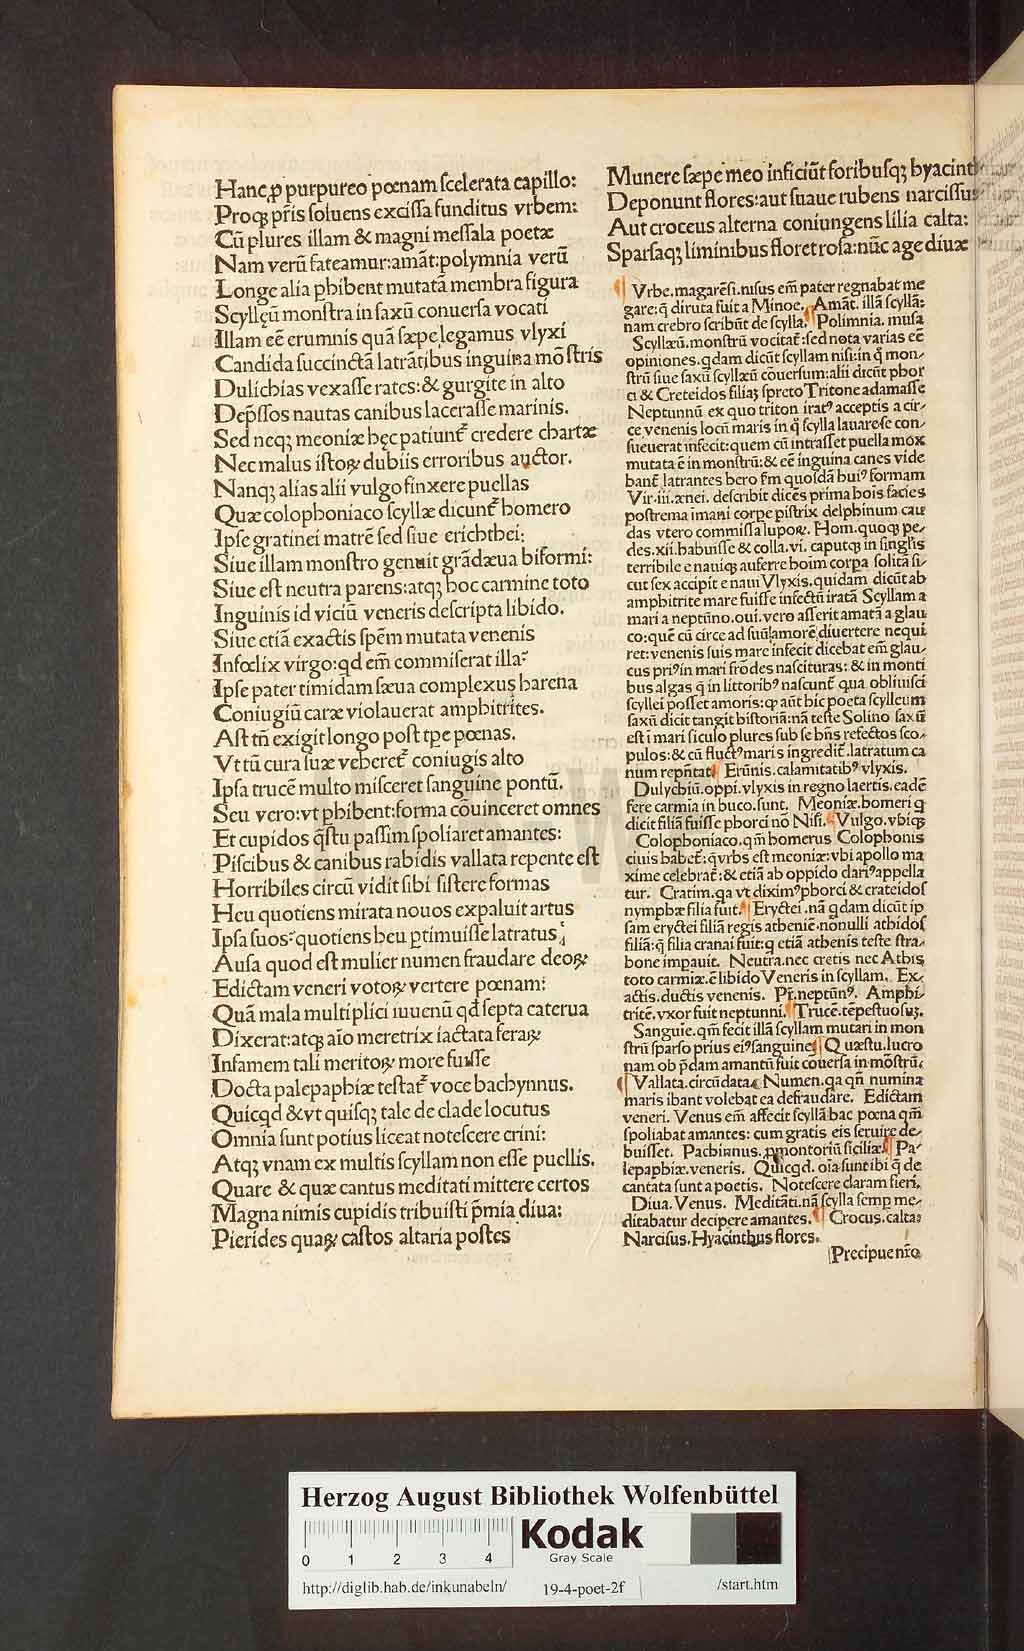 Hanc ꝓ purpureo pœnam ſcelerata capillo:
Proqꝫ pr̄is ſoluens exciſſa funditus vrbem:
Cū plures illam & magni meſſala poetæ
Nam verū fateamur: amāt: polymnia verū
Longe alia ꝑhibent mutatā membra figura
Scyllęū monſtra in ſaxū conuerſa vocati
Illam eē erumnis quā ſæpe legamus vlyxi
Candida ſuccinctā latrātibus inguina mōſtris
Dulichias vexaſſe rates: & gurgite in alto
Dep̄ſſos nautas canibus laceraſſe marinis.
Sed neqꝫ meoniæ hęc patiunt᷑ credere chartæ
Nec malus iſtoꝝ dubiis erroribus auctor.
Nanqꝫ alias alii vulgo finxere puellas
Quæ colophoniaco ſcyllæ dicunt᷑ homero
Ipſe gratinei matrē ſed ſiue erichthei:
Siue illam monſtro genuit grādæua biformi:
Siue eſt neutra parens: atqꝫ hoc carmine toto
Inguinis id viciū veneris deſcripta libido.
Siue etiā exactis ſpēm mutata venenis
Infœlix virgo: qd em̄ commiſerat illa?
Ipſe pater timidam ſæua complexus harena
Coniugiū caræ violauerat amphitrites.
Aſt tn̄ exigit longo poſt tp̄e pœnas.
Vt tū cura ſuæ veheret᷑ coniugis alto
Ipſa trucē multo miſceret ſanguine pontū.
Seu vero: vt ꝑhibent: forma cōuinceret omnes
Et cupidos q̄ſtu paſſim ſpoliaret amantes:
Piſcibus & canibus rabidis vallata repente eſt
Horribiles circū vidit ſibi ſiſtere formas
Heu quotiens mirata nouos expaluit artus
Ipſa ſuos: quotiens heu ꝑtimuiſſe latratus
Auſa quod eſt mulier numen fraudare deoꝝ
Edictam veneri votoꝝ vertere pœnam:
Quā mala multiplici iuuenū qd ſepta caterua
Dixerat: atqꝫ aīo meretrix iactata feraꝝ
Infamem tali meritoꝝ more fuiſſe
Docta palepaphiæ teſtat᷑ voce bachynnus.
Quicqd & vt quiſqꝫ tale de clade locutus
Omnia ſunt potius liceat noteſcere crini:
Atqꝫ vnam ex multis ſcyllam non eſſe puellis.
Quare & quæ cantus meditati mittere certos
Magna nimis cupidis tribuiſti p̄mia diua:
Pierides quaꝝ caſtos altaria poſtes
Munere ſæpe meo inficiūt foribuſqꝫ hyacint
Deponunt flores: aut ſuaue rubens narciſſus
Aut croceus alterna coniungens lilia calta:
Sparſaqꝫ liminibus floret roſa: nūc age diuæ
¶ Vrbe. magarēſi. niſus em̄ pater regnabat me
gare: q̄ diruta fuit a Minoe. Amāt. illā ſcyllā:
nam crebro ſcribūt de ſcylla. ¶ Polimnia. muſa
Scyllæū. monſtrū vocitat᷑: ſed nota varias eē
opiniones. qdam dicūt ſcyllam niſi: in q̊ mon-
ſtrū ſiue ſaxū ſcyllæū cōuerſum: alii dicūt phor
ci & Creteidos filiaꝫ ſpreto Tritone adamaſſe
Neptunnū ex quo triton iratꝰ acceptis a cir-
ce venenis locū maris in q̊ ſcylla lauareſe con-
ſueuerat infecit: quem cū intraſſet puella mox
mutata ē in monſtrū: & eē inguina canes vide
bant᷑ latrantes hero ſm̄ quoſdā huiꝰ formam
Vir. iii. ænei. deſcribit dicēs prima hois facies
poſtrema imani corpe piſtrix delphinum cau
das vtero commiſſa lupoꝝ. Hom. quoqꝫ pe-
des. xii. habuiſſe & colla. vi. caputqꝫ in ſinglis
terribile e nauiqꝫ auferre hoim corpa ſolitā ſi-
cut ſex accipit e naui Vlyxis. quidam dicūt ab
amphitrite mare fuiſſe infectū iratā Scyllam a
mari a neptūno. oui. vero aſſerit amatā a glau
co: quē cū circe ad ſuū amorē diuertere nequi
ret: venenis ſuis mare infecit dicebat em̄ glau-
cus priꝰ in mari frōdes naſcituras: & in monti
bus algas q̄ in littoribꝰ naſcunt᷑ qua obliuiſci
ſcyllei poſſet amoris: qꝫ aūt hic poeta ſcylleum
ſaxū dicit tangit hiſtoriā: nā teſte Solino ſaxū
eſt i mari ſiculo plures ſub ſe hn̄s refectos ſco-
pulos: & cū fluctꝰ maris ingredit᷑. latratum ca
num rep̄ntat. ¶ Erūnis. calamitatibꝰ vlyxis.
Dulychiū. oppi. vlyxis in regno laertis. eadē
fere carmīa in buco. ſunt. Meoniæ. homeri q̄
dicit filiā fuiſſe phorci nō Niſi. ¶ Vulgo. vbiqꝫ
Colophoniaco. qm̄ homerus Colophonis
ciuis habet᷑: q̄ vrbs eſt meoniæ: vbi apollo ma
xime celebrat᷑: & etiā ab oppido clariꝰ appella
tur. Cratim. qa vt diximꝰ phorci & crateidos
nymphæ filia fuit. ¶ Eryctei. nā qdam dicūt ip
ſam eryctei filiā regis atheniē. nōnulli athidos
filiā: q̄ filia cranai fuit: q̄ etiā athenis teſte ſtra-
bone impauit. Neutra. nec cretis nec Athis
toto carmiæ. ē libido Veneris in ſcyllam. Ex-
actis. ductis venenis. Pr̄. neptūnꝰ. Amphi
tritē. vxor fuit neptunni. ¶ Trucē. tēpeſtuoſuꝫ.
Sanguīe. qm̄ fecit illā ſcyllam mutari in mon
ſtrū ſparſo prius eiꝰ ſanguine. ¶ Quæſtu. lucro
nam ob p̄dam amantū fuit cōuerſa in mōſtrū.
¶ Vallata. circūdata. Numen. qa qn̄ numina
maris ibant volebat ea defraudare. Edictam
veneri. Venus em̄ affecit ſcyllā hac pœna qm̄
ſpoliabat amantes: cum gratis eis ſeruire de-
buiſſet. Pachianus. ꝓmontoriū ſiciliæ. ¶ Pa-
lepaphiæ. veneris. Quicqd. oīa ſunt ibi q̄ de
cantata ſunt a poetis. Noteſcere claram fieri.
Diua. Venus. Meditāti. nā ſcylla ſemp me-
ditabatur decipere amantes. ¶ Crocus. calta:
Narciſus. Hyacinthus flores.
Precipue nr̄o
HAB-W
Herzog August Bibliothek Wolfenbüttel
0 1 2 3 4
Kodak
Gray Scale
http://diglib.hab.de/inkunabeln/ 19-4-poet-2f /start.htm